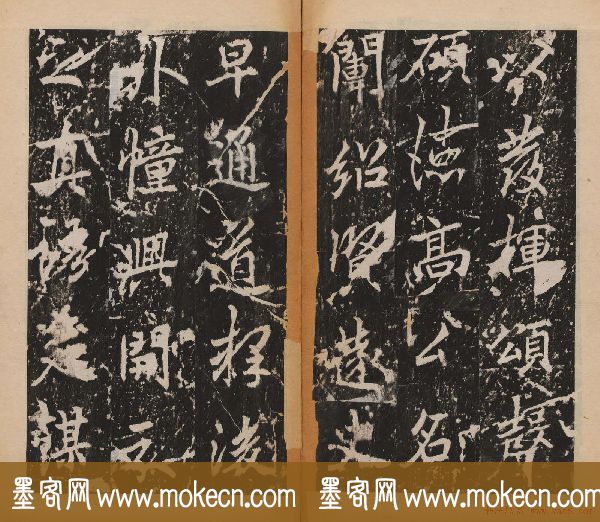 發揮頌聲
碩德高公名
闡紹賢遠
早通道
外幢興開
之真楚謀
墨客网 www.mokecn.com 墨客网 www.mokecn.com